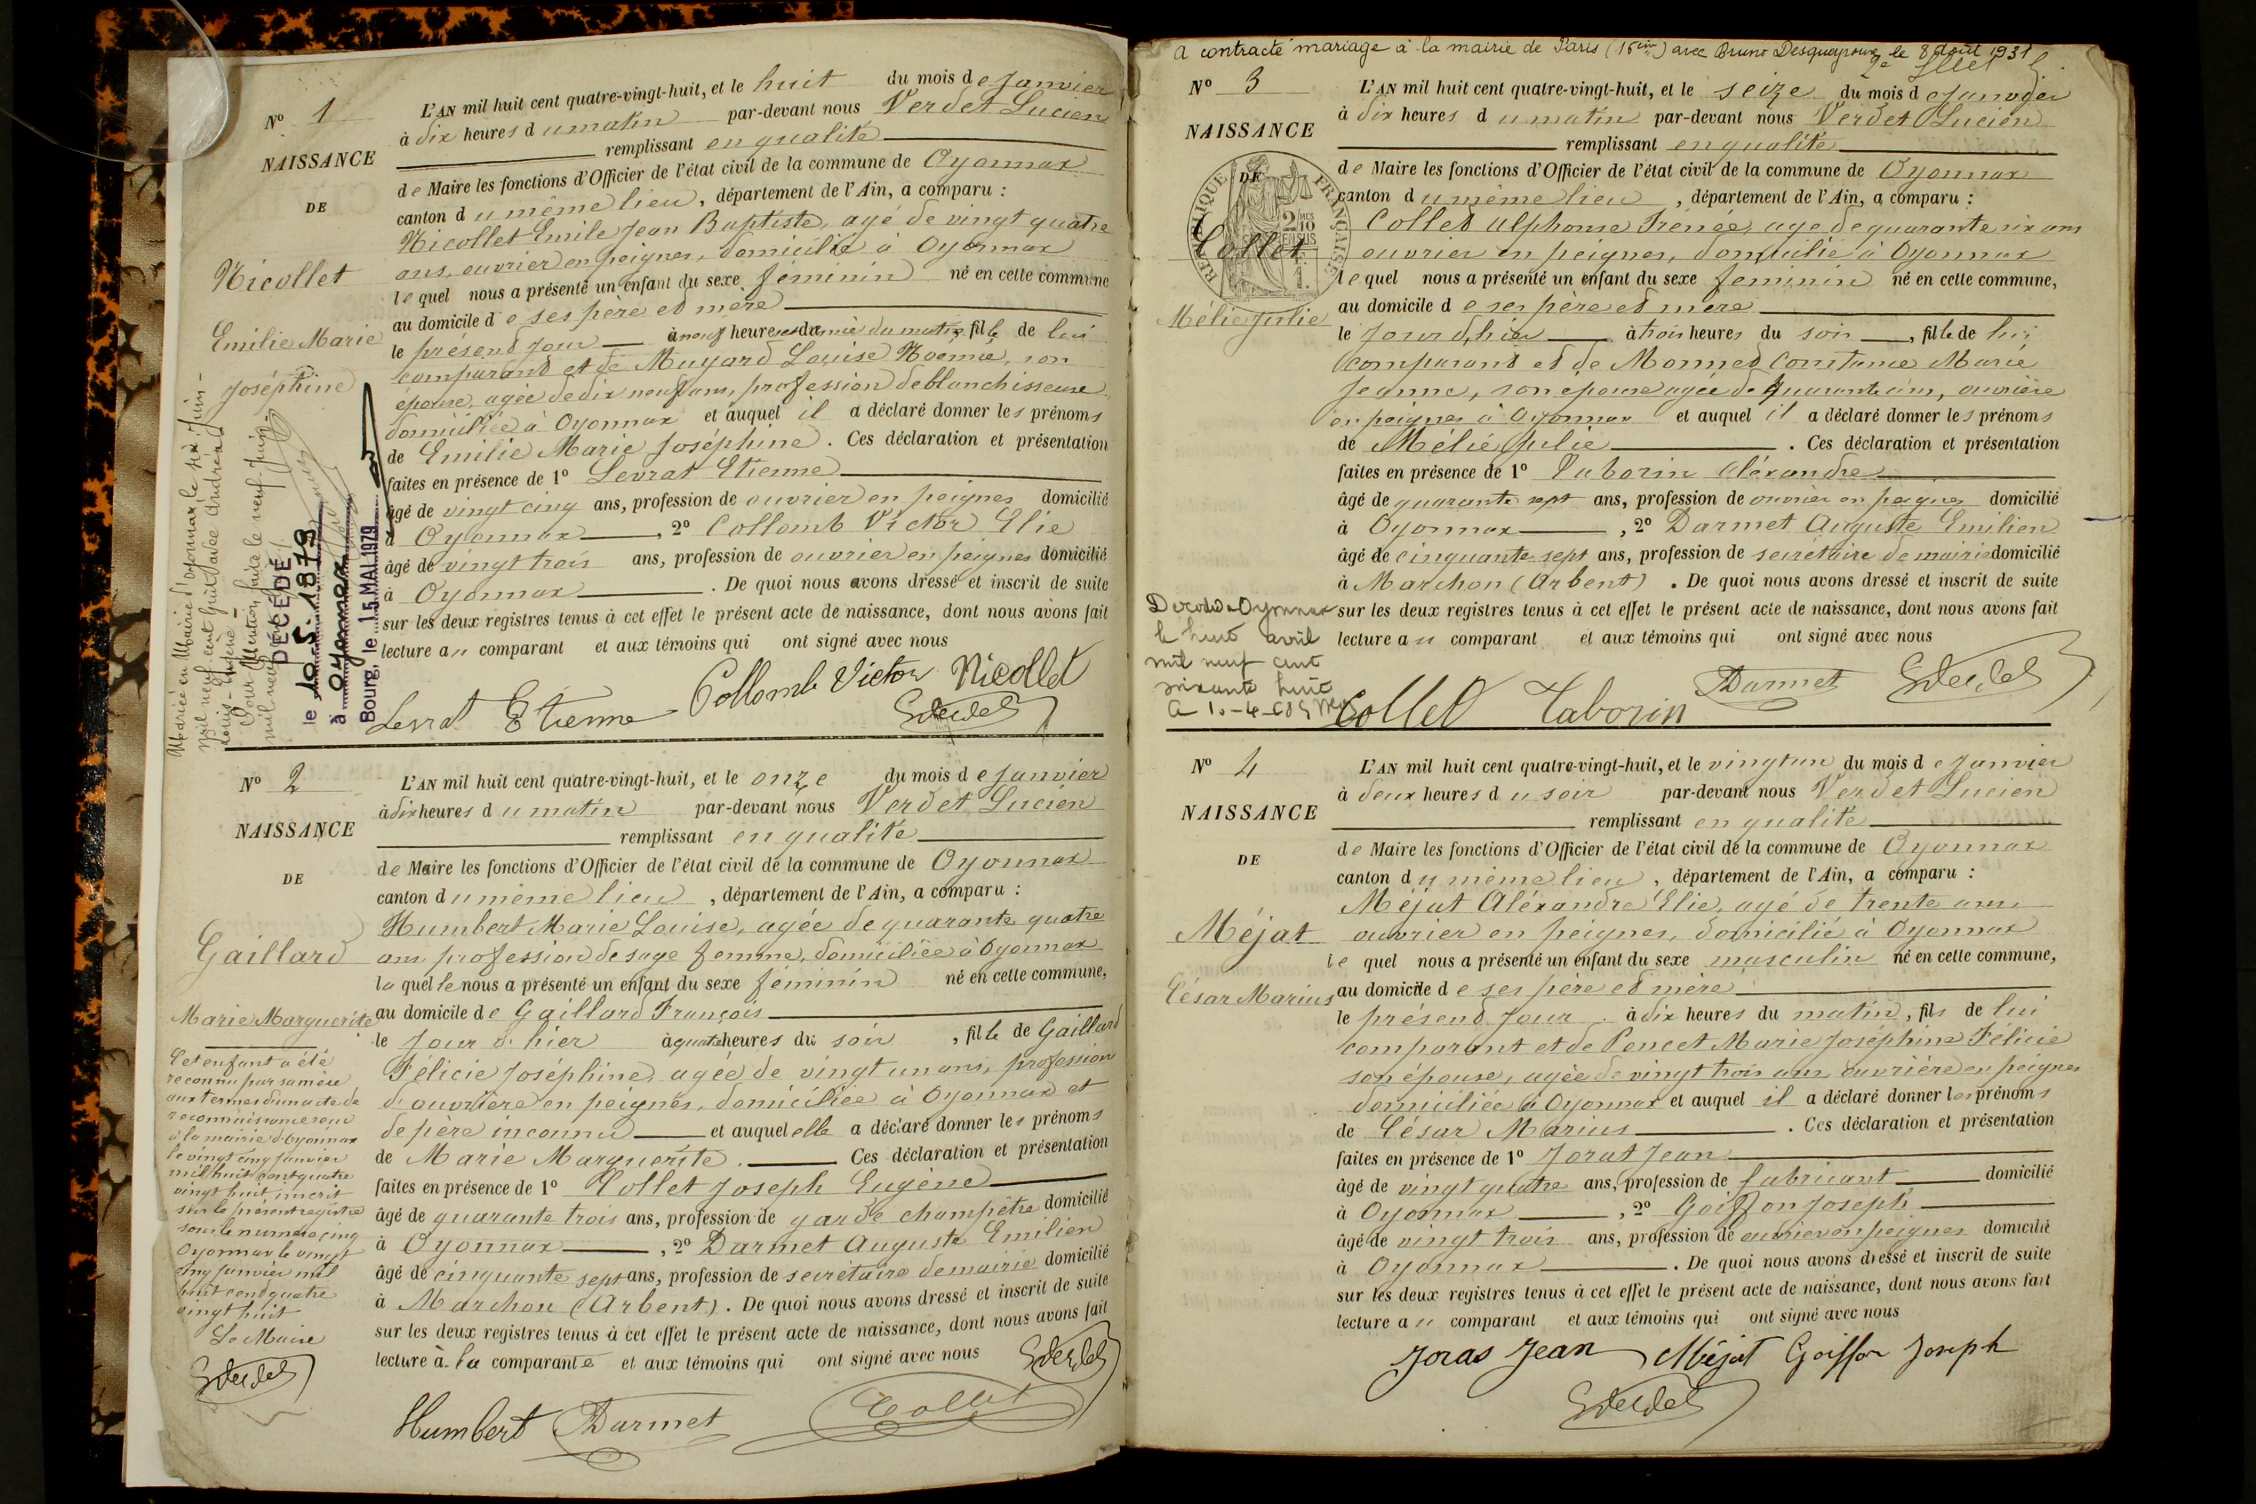 Nº 1
NAISSANCE
DE
Nicollet
Emilie Marie
Joséphine
L'AN mil huit cent quatre-vingt-huit, et le huit du mois de Janvier
à dix heures du matin par-devant nous Verdet Lucien
remplissant en qualité
de Maire les fonctions d'Officier de l'état civil de la commune de Oyonnax
canton du même lieu, département de l'Ain, a comparu :
Nicollet Emile Jean Baptiste, agé de vingt quatre
ans, ouvrier en peignes, domicilié à Oyonnax
lequel nous a présenté un enfant du sexe feminin né en cette commune
au domicile de ses père et mère
le présent jour à neuf heures et demie du matin, fille de lui
comparant et de Muyard Louise Noémie, son
épouse, agée de dix neuf ans, profession de blanchisseuse
domiciliée à Oyonnax et auquel il a déclaré donner les prénoms
de Emilie Marie Joséphine. Ces déclaration et présentation
faites en présence de 1º Levrat Etienne
âgé de vingt cinq ans, profession de ouvrier en peignes domicilié
à Oyonnax, 2º Collomb Victor Elie
âgé de vingt trois ans, profession de ouvrier en peignes domicilié
à Oyonnax. De quoi nous avons dressé et inscrit de suite
sur les deux registres tenus à cet effet le présent acte de naissance, dont nous avons fait
lecture au comparant et aux témoins qui ont signé avec nous
Levrat Etienne Collomb Victor Nicollet
Mariée en Mairie d'Oyonnax le six Juin
mil neuf cent
Louis Eugène
Pour Mention faite le neuf juin
mil neuf cent
DÉCÉDÉ
le 10.5.1879
à Oyonnax
Bourg, le 15 MAI 1979
Nº 2
NAISSANCE
DE
Gaillard
Marie Marguerite
L'AN mil huit cent quatre-vingt-huit, et le onze du mois de Janvier
à dix heures du matin par-devant nous Verdet Lucien
remplissant en qualité
de Maire les fonctions d'Officier de l'état civil de la commune de Oyonnax
canton du même lieu, département de l'Ain, a comparu :
Humbert Marie Louise, agée de quarante quatre
ans profession de sage femme, domiciliée à Oyonnax
laquelle nous a présenté un enfant du sexe féminin né en cette commune,
au domicile de Gaillard François
le jour d'hier à quatre heures du soir, fille de Gaillard
Félicie Joséphine, agée de vingt un ans, profession
d'ouvrière en peignes, domiciliée à Oyonnax et
de père inconnu et auquel elle a déclaré donner les prénoms
de Marie Marguerite. Ces déclaration et présentation
faites en présence de 1º Collet Joseph Eugène
âgé de quarante trois ans, profession de garde champêtre domicilié
à Oyonnax, 2º Darmet Auguste Emilien
âgé de cinquante sept ans, profession de secrétaire de mairie domicilié
à Marchon (Arbent). De quoi nous avons dressé et inscrit de suite
sur les deux registres tenus à cet effet le présent acte de naissance, dont nous avons fait
lecture à la comparante et aux témoins qui ont signé avec nous
Humbert Darmet Collet
Cet enfant a été
reconnu par sa mère
aux termes d'un acte de
reconnaissance reçu
à la mairie d'Oyonnax
le vingt cinq janvier
mil huit cent quatre
vingt huit, inscrit
sur le présent registre
sous le numéro cinq
Oyonnax le vingt
cinq janvier mil
huit cent quatre
vingt huit
Le Maire
a contracté mariage à la mairie de Paris (16ème) avec Bruno Desqueyroux le 8 Août 1931
Nº 3
NAISSANCE
DE
RÉPUBLIQUE FRANÇAISE
Collet
Mélie Julie
L'AN mil huit cent quatre-vingt-huit, et le seize du mois de Janvier
à dix heures du matin par-devant nous Verdet Lucien
remplissant en qualité
de Maire les fonctions d'Officier de l'état civil de la commune de Oyonnax
canton du même lieu, département de l'Ain, a comparu :
Collet Alphonse Irénée, agé de quarante six ans
ouvrier en peignes, domicilié à Oyonnax
lequel nous a présenté un enfant du sexe feminin né en cette commune,
au domicile de ses père et mère
le jour d'hier à trois heures du soir, fille de lui
comparant et de Monnet Constance Marie
Jeanne, son epouse agée de quarante ans, ouvrière
en peignes à Oyonnax et auquel il a déclaré donner les prénoms
de Mélie Julie. Ces déclaration et présentation
faites en présence de 1º Taborin Alexandre
âgé de quarante sept ans, profession de ouvrier en peignes domicilié
à Oyonnax, 2º Darmet Auguste Emilien
âgé de cinquante sept ans, profession de secrétaire de mairie domicilié
à Marchon (Arbent). De quoi nous avons dressé et inscrit de suite
sur les deux registres tenus à cet effet le présent acte de naissance, dont nous avons fait
lecture au comparant et aux témoins qui ont signé avec nous
Décédée Oyonnax
le huit avril
mil neuf cent
soixante huit
Collet Taborin Darmet
Nº 4
NAISSANCE
DE
Méjat
César Marius
L'AN mil huit cent quatre-vingt-huit, et le vingt un du mois de Janvier
à deux heures du soir par-devant nous Verdet Lucien
remplissant en qualité
de Maire les fonctions d'Officier de l'état civil de la commune de Oyonnax
canton du même lieu, département de l'Ain, a comparu :
Méjat Aléxandre Elie, agé de trente ans
ouvrier en peignes, domicilié à Oyonnax
le quel nous a présenté un enfant du sexe masculin né en cette commune,
au domicile de ses père et mère
le présent jour à dix heures du matin, fils de lui
comparant et de Poncet Marie Joséphine Félicie
son épouse, agée de vingt trois ans ouvrière en peignes
domiciliée à Oyonnax et auquel il a déclaré donner les prénoms
de César Marius. Ces déclaration et présentation
faites en présence de 1º Jorat Jean
âgé de vingt quatre ans, profession de fabricant domicilié
à Oyonnax, 2º Goiffon Joseph
âgé de vingt trois ans, profession de ouvrier en peignes domicilié
à Oyonnax. De quoi nous avons dressé et inscrit de suite
sur les deux registres tenus à cet effet le présent acte de naissance, dont nous avons fait
lecture au comparant et aux témoins qui ont signé avec nous
Joras Jean Méjat Goiffon Joseph